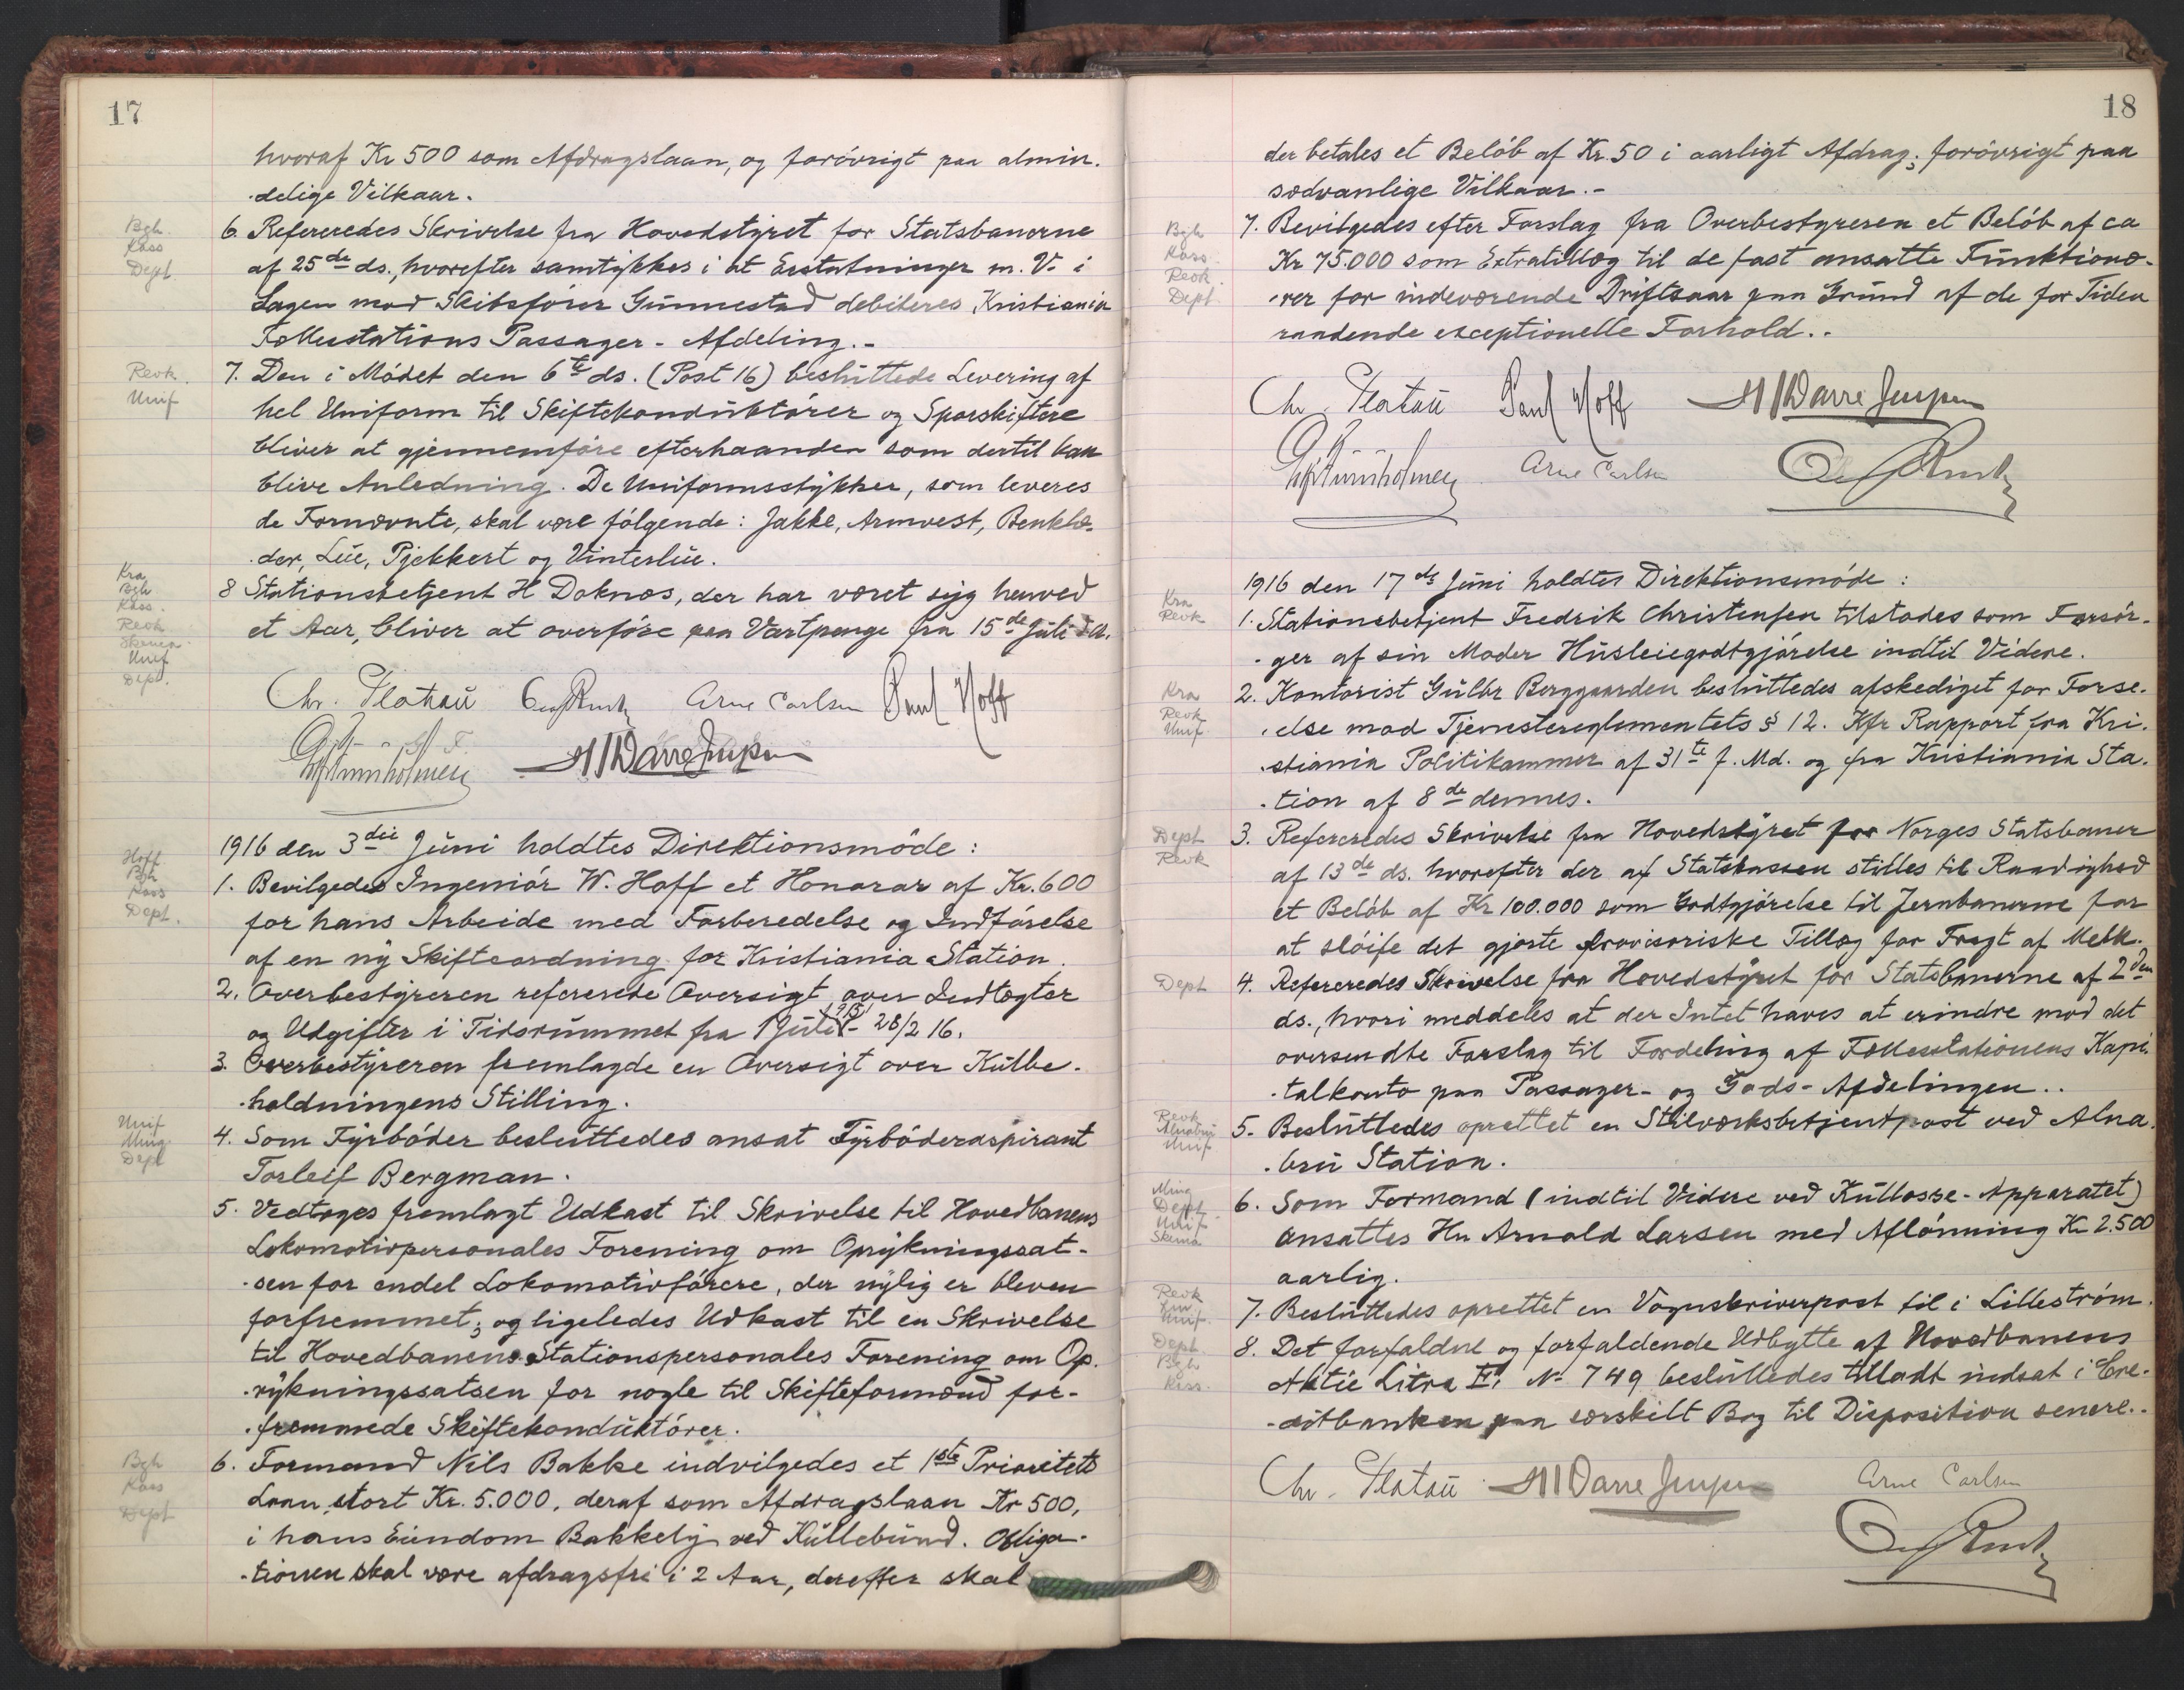 17
hvoraf Kr 500 som Afdragslaan, og forövrigt paa almin.
delige Vilkaar.
Bgh.
Kass
Dept
6. Refereredes Skrivelse fra Hovedstyret for Statsbanerne
af 25de ds., hvorefter samtykkes i at Erstatninger m. V. i
Sagen mod Skibsfører Gunnestad debiteres Kristiania
Fællesstations Passager-Afdeling.-
Revk.
Unif
7. Den i Mödet den 6te ds. (Post 16) besluttede Levering af
hel Uniform til Skiftekonduktörer og Sporskiftere
bliver at gjennemföre efterhaanden som dertil kan
blive Anledning. De Uniformsstykker, som leveres
de Fornævnte, skal være fölgende: Jakke, Armvest, Benklæ-
der, Lue, Pjekkert og Vinterlue.
Kra
Bgh
Kass.
Revk
Skema
Unif
Dept.
8 Stationsbetjent H Doknæs, der har været syg henved
et Aar, bliver at overföre paa Vartpenge fra 15de Juli d.A.
Chr. Platou Arne Carlsen Paul Hoff
1916 den 3die Juni holdtes Direktionsmöde:
Hoff
Bgh
Kass
Dept.
1. Bevilgedes Ingeniör W. Hoff et Honorar af Kr. 600
for hans Arbeide med Forberedelse og Indförelse
af en ny Skifteordning for Kristiania Station.
2. Overbestyreren refererede Oversigt over Indtægter
og Udgifter i Tidsrummet fra 1 Juli 1915 - 28/2 16.
3. Overbestyreren fremlagde en Oversigt over Kulbe-
holdningens Stilling.
Unif
Ming.
Dept
4. Som Fyrböder besluttedes ansat Fyrböderaspirant
Torleif Bergman.
5. Vedtoges fremlagt Udkast til Skrivelse til Hovedbanens
Lokomotivpersonales Forening om Oprykningssat-
sen for endel Lokomotivförere, der nylig er bleven
forfremmet; og ligeledes Udkast til en Skrivelse
til Hovedbanens Stationspersonales Forening om Op-
rykningssatsen for nogle til Skifteformænd for-
fremmede Skiftekonduktörer.
Bgh
Kass
Dept
6. Formand Nils Bakke indvilgedes et 1ste Prioritets
Laan stort Kr. 5.000, deraf som Afdragslaan Kr 500,
i hans Eiendom Bakkely ved Kullebund. Obliga-
tionen skal være afdragsfri i 2 Aar, derefter skal
18
der betales et Belöb af Kr. 50 i aarligt Afdrag; forövrigt paa
sædvanlige Vilkaar.-
Bgh
Kass.
Revk.
Dept.
7. Bevilgedes efter Forslag fra Overbestyreren et Belöb af ca
Kr 75.000 som Extratillæg til de fast ansatte Funktionæ-
rer for indeværende Driftsaar paa Grund af de for Tiden
raadende exceptionelle Forhold..
Chr. Platou Paul Hoff
Arne Carlsen
1916 den 17de Juni holdtes Direktionsmöde:
Kra
Revk
1. Stationsbetjent Fredrik Christensen tilstodes som Forsör-
ger af sin Moder Husleiegodtgjörelse indtil Videre.
Kra
Revk
Unif.
2. Kontorist Gulbr Berggaarden besluttedes afskediget for Forse-
else mod Tjenestereglementets § 12. Kfr Rapport fra Kri-
stiania Politikammer af 31te f. Md. og fra Kristiania Sta-
tion af 8de dennes.
Dept
Revk
3. Refereredes Skrivelse fra Hovedstyret for Norges Statsbaner
af 13de ds. hvorefter der af Statskassen stilles til Raadighed
et Belöb af Kr 100.000 som Godtgjörelse til Jernbanerne for
at slöife det gjorte provisoriske Tillæg for Fragt af Melk.
Dept
4. Refereredes Skrivelse fra Hovedstyret for Statsbanerne af 2den
ds., hvori meddeles at der Intet haves at erindre mod det
oversendte Forslag til Fordeling af Fællesstationens Kapi-
talkonto paa Passager- og Gods-Afdelingen..
Revk
Alnabru
Unif
5. Besluttedes oprettet en Stilværksbetjentpost ved Alna-
bru Station.
Ming
Dept.
Unif
Skema
6. Som Formand (indtil Videre ved Kullosse-Apparatet)
ansattes Hr Arnold Larsen med Aflönning Kr 2.500
aarlig.
Revk
Unif.
7. Besluttedes oprettet en Vognskriverpost til i Lilleström.
Dept.
Bgh.
Kass.
8. Det forfaldne og forfaldende Udbytte af Hovedbanens
Aktie Litra E, No 749 besluttedes tilladt indsat i Cre-
ditbanken paa særskilt Bog til Disposition senere..
Chr. Platou Arne Carlsen